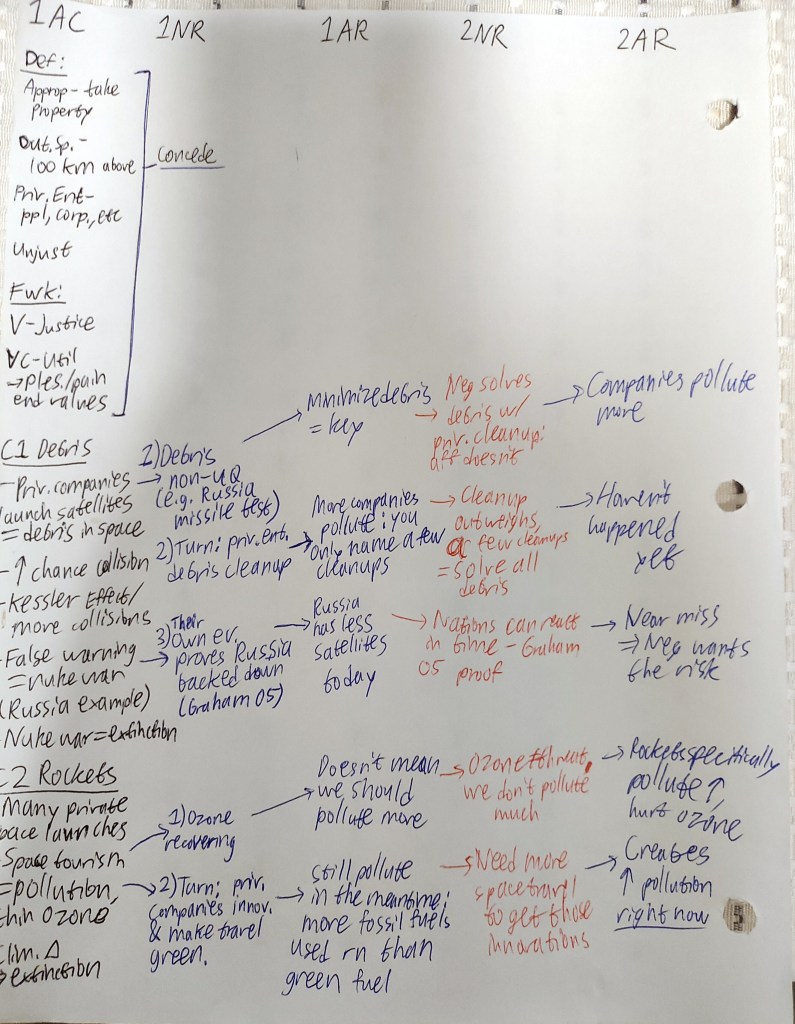 1AC
1NR
1AR
2NR
2AR
Def:
Approp - take
Property
Out. Sp. -
100 km above
Priv. Ent -
ppl, corp., etc
Unjust
Fwk:
V-Justice
VC-Util
→ples./pain
end values
Concede
C1 Debris
- Priv. companies
launch satellites
= debris in space
- ↑ chance collision
- Kessler Effect/
more collisions
- False warning
= nuke war
(Russia example)
- Nuke war = extinction
1) Debris
non-UQ
(e.g. Russia
missile test)
2) Turn: priv. ent.
debris cleanup
3) Their
own ev.
proves Russia
backed down
(Graham 05)
Minimize debris
= key
More companies
pollute; you
only name a few
cleanups
Russia
has less
satellites
today
Neg solves
debris w/
priv. cleanup;
aff doesn't
Cleanup
outweighs,
a few cleanups
= solve all
debris
Nations can react
in time - Graham
05 proof
Companies pollute
more
Haven't
happened
yet
Near miss
⇒ Neg wants
the risk
C2 Rockets
Many private
space launches
- Space tourism
= pollution,
thin ozone
Clim. Δ
→ extinction
1) Ozone
recovering
2) Turn; priv.
companies innov.
& make travel
green.
Doesn't mean
we should
pollute more
Still pollute
in the meantime;
more fossil fuels
used rn than
green fuel
Ozone ≠ threat,
we don't pollute
much
Need more
space travel
to get those
innovations
Rockets specifically
pollute ↑,
hurt ozone
Creates
↑ pollution
right now